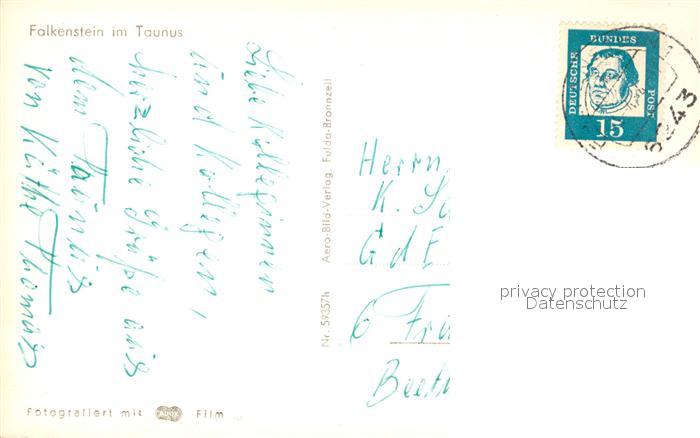 Falkenstein im Taunus
Liebe Kolleginnen
und Kollegen,
herzliche Grüße aus
dem Taunus
von Käthe Thomas
Nr. 59357h Aero-Bild-Verlag, Fulda-Bronnzell
DEUTSCHE BUNDES POST
15
6243
Herrn
K.
GdE
6 Fra
Beeth
privacy protection
Datenschutz
Fotografiert mit ADOX Film